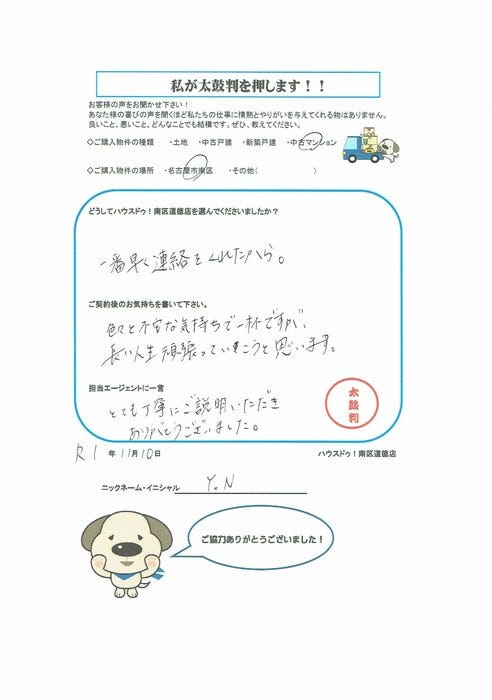 私が太鼓判を押します！！
お客様の声をお聞かせ下さい！
あなた様の喜びの声を聞くほど私たちの仕事に情熱とやりがいを与えてくれる物はありません。
良いこと、悪いこと、どんなことでも結構です。ぜひ、教えてください。
◇ご購入物件の種類　・土地　・中古戸建　・新築戸建　・中古マンション
◇ご購入物件の場所　・名古屋市南区　・その他（　　　　　　）
どうしてハウスドゥ！南区道徳店を選んでくださいましたか？
一番早く連絡をくれたから。
ご契約後のお気持ちを書いて下さい。
色々と不安な気持ちで一杯ですが、
長い人生頑張っていきこうと思います。
担当エージェントに一言
とても丁寧にご説明いただき
ありがとうございました。
太鼓判
R1 年 11月 10日
ハウスドゥ！南区道徳店
ニックネーム・イニシャル　Y.N
ご協力ありがとうございました！